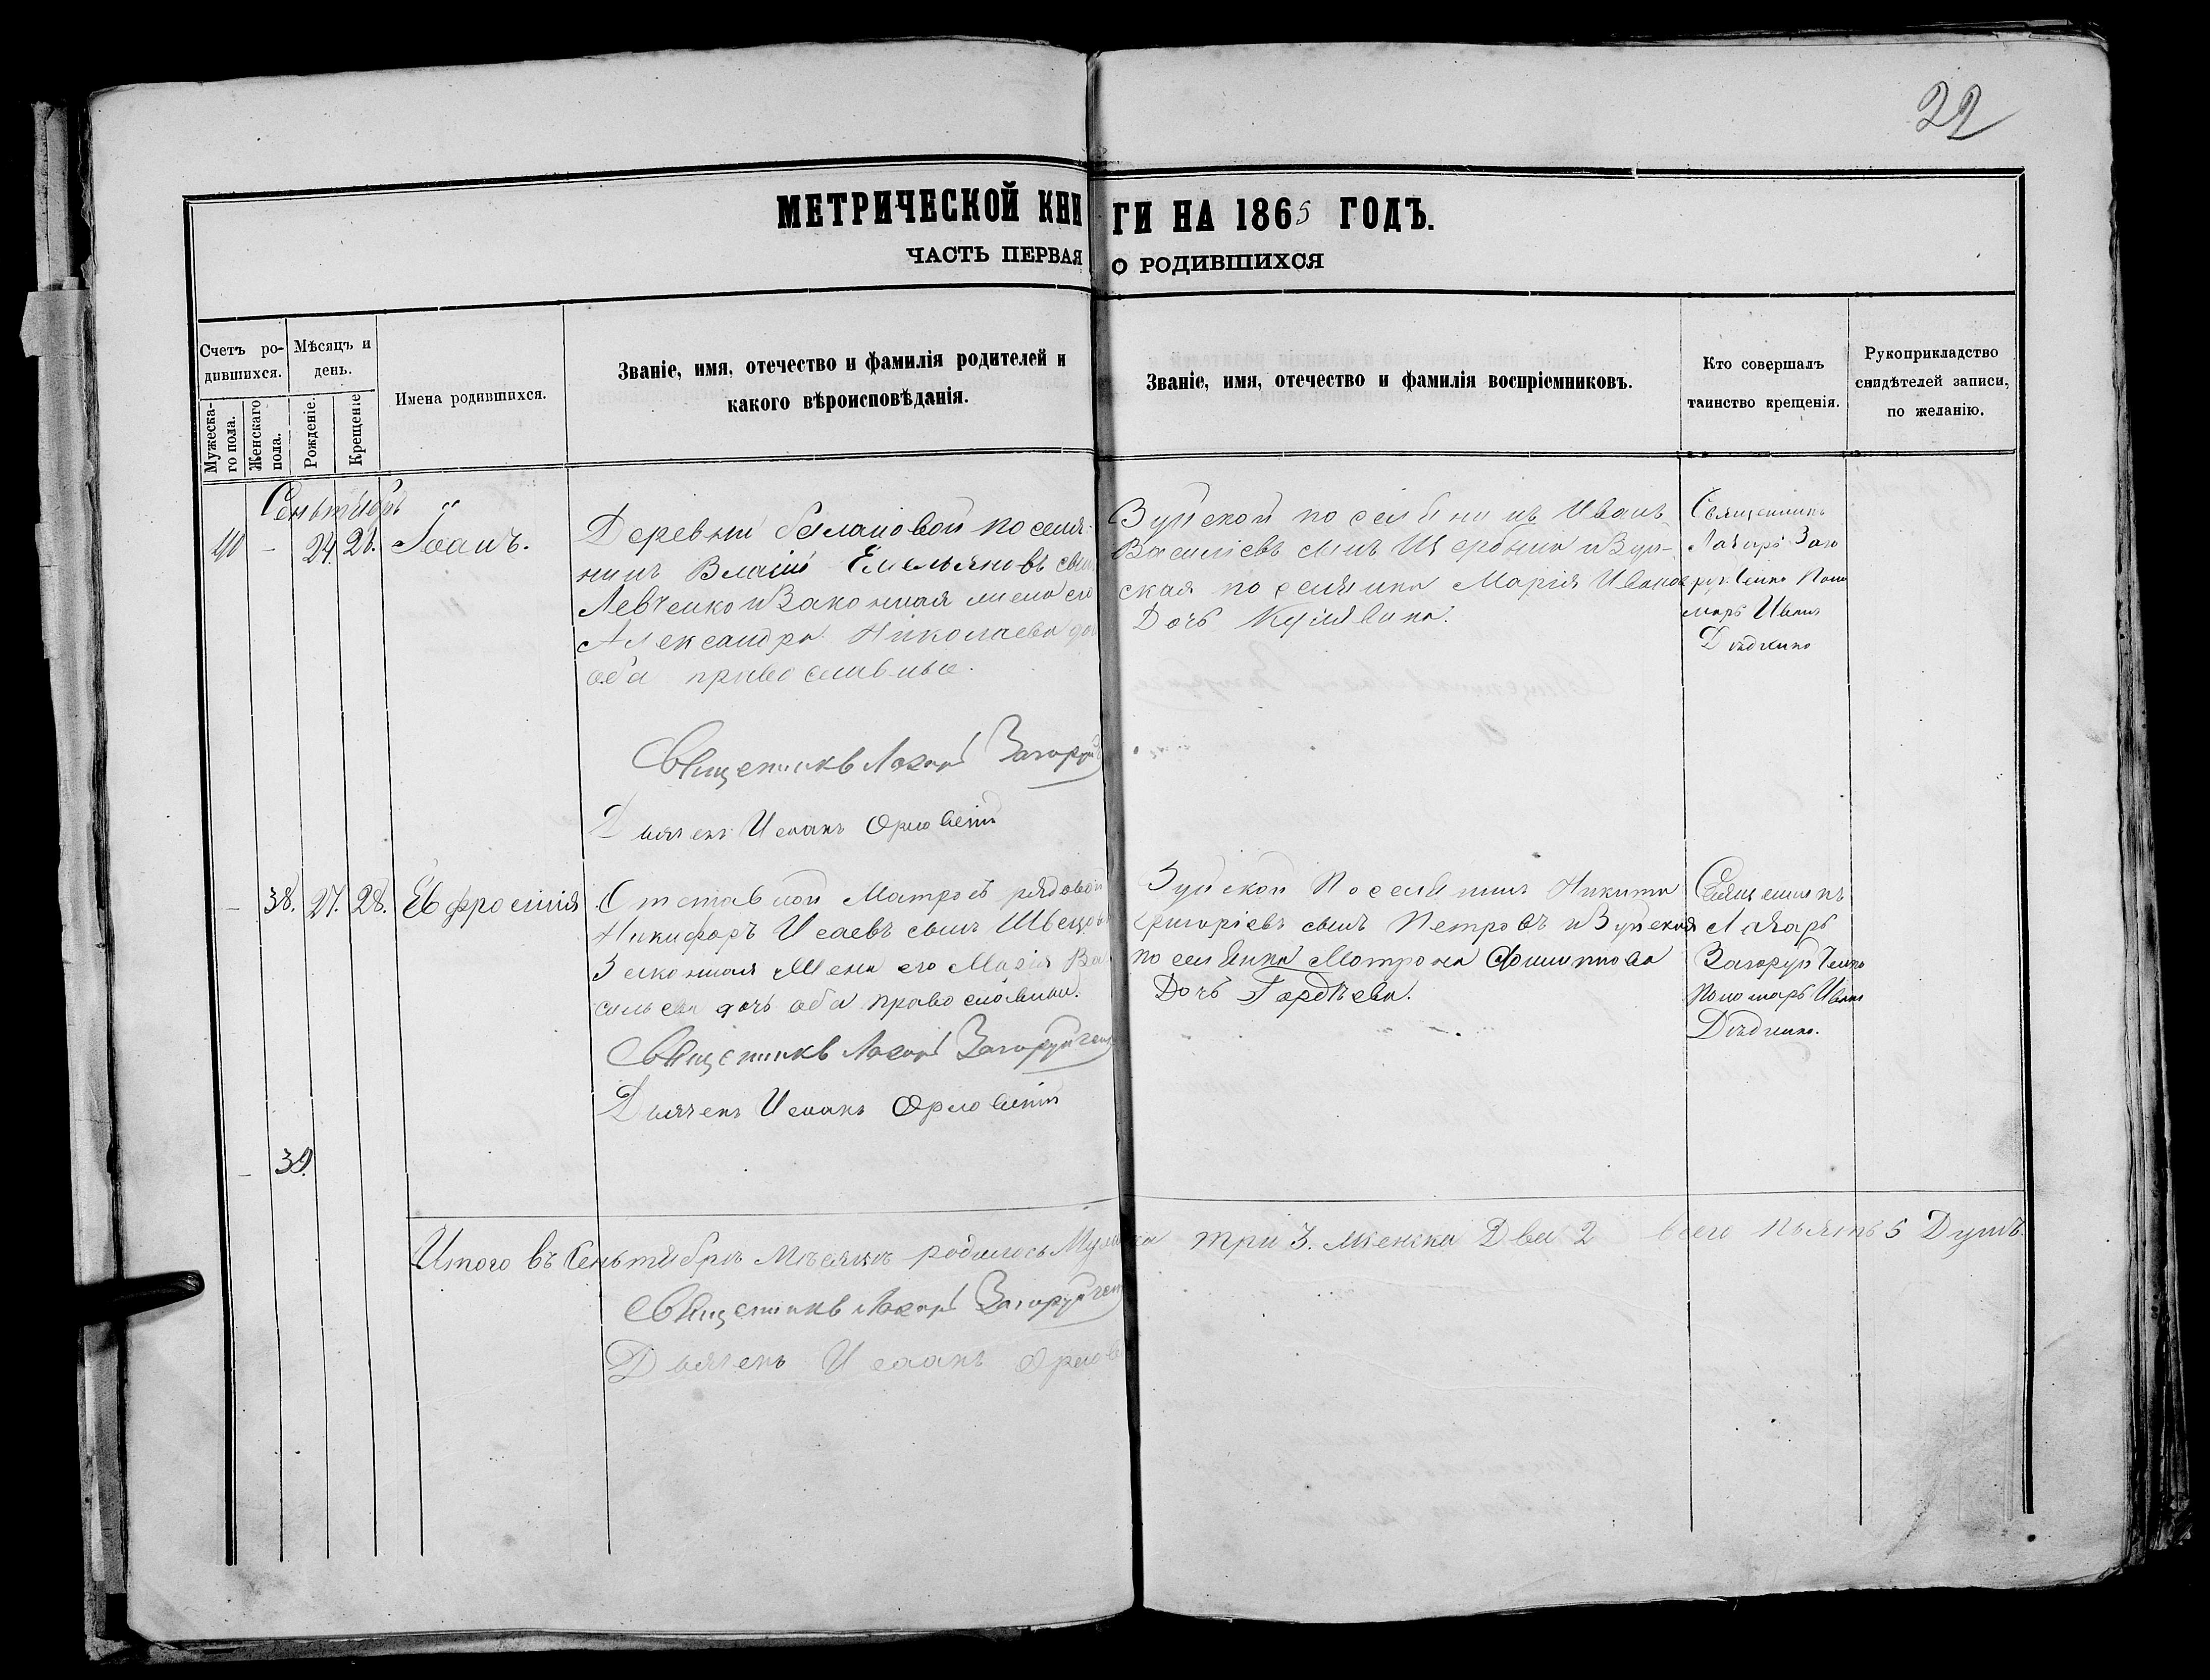 22
МЕТРИЧЕСКОЙ КНИГИ НА 1865 ГОДЪ.
ЧАСТЬ ПЕРВАЯ О РОДИВШИХСЯ
Счетъ ро-
дившихся.
Мужеска-
го пола.
Женскаго
пола.
Мѣсяцъ и
день.
Рожденіе.
Крещеніе
Имена родившихся.
Званіе, имя, отечество и фамилія родителей и
какого вѣроисповѣданія.
Званіе, имя, отечество и фамилія воспріемниковъ.
Кто совершалъ
таинство крещенія.
Рукоприкладство
свидѣтелей записи,
по желанію.
Сеньтябрь
40 - 24. 28. Іоанъ.
Деревни поселя-
нинъ Власій Емельяновъ сынъ
Левченко и Законная жена его
Александра Николаева
оба православные.
Священникъ Лазарь
Дьячекъ Исаакъ Орловскій
Зуйской поселянинъ Иванъ
Василіевъ сынъ Щербина и Зуй-
ская поселянка Марія Иванова
Дочь
Священникъ
Лазарь Заго
руйченко Поно
марь Иванъ
Дѣденко
- 38. 27. 28. Евфросинія
Отставной Матросъ рядовой
Никифоръ Исаевъ сынъ Швецовъ
Законная Жена его Марія Ва
сильева дочь оба православны.
Священникъ Лазарь Загоруйченко
Дьячекъ Исаакъ Орловскій
Зуйской Поселянинъ Никита
Григоріевъ сынъ Петровъ и Зуйская
поселянка Матрона
Дочь Гордѣева.
Священникъ
Лазарь
Загоруйченко
Пономарь Иванъ
Дѣденко.
- 39.
Итого въ Сеньтябрѣ Мѣсяцѣ родилось Мужска три 3. женска Два 2 всего пьять 5 Душъ.
Священникъ Лазарь Загоруйченко
Дьячекъ Исаакъ